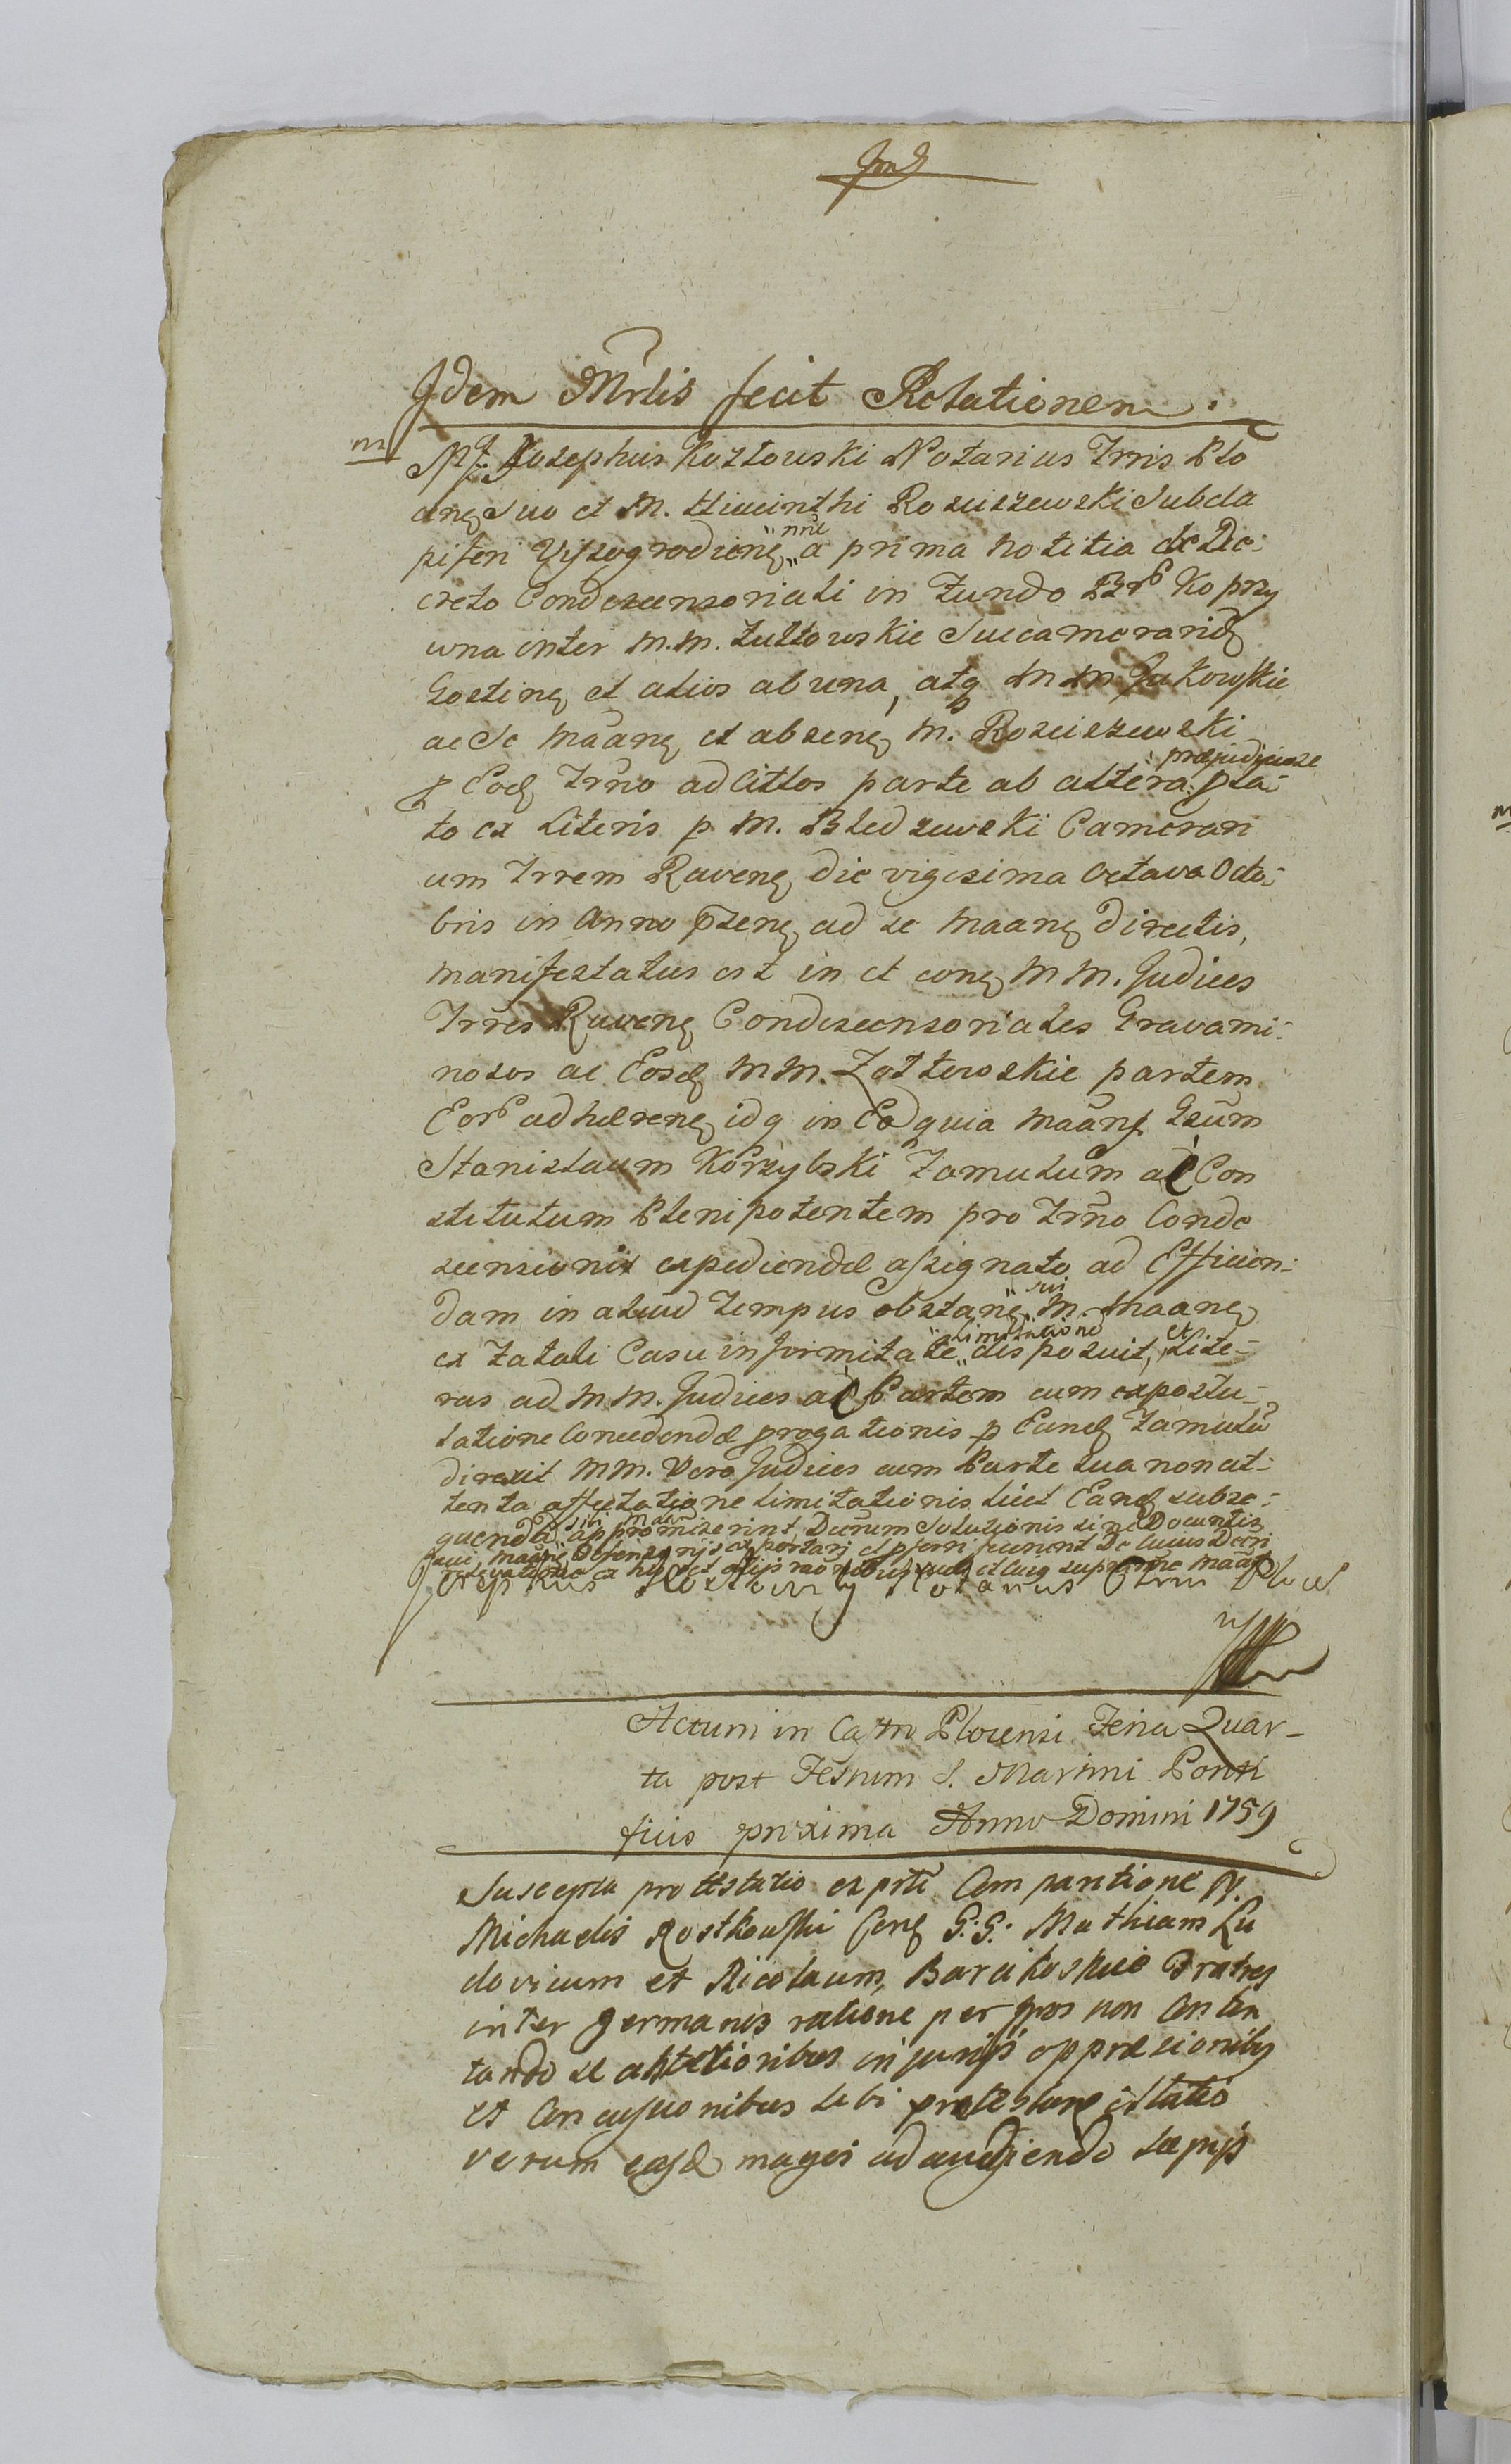 Idem Mrlis fecit Relationem.
m
Mf. Josephus Kozłowski Notarius Trris Plo
cenę Suo et M. Hiacinthi Rosciszewski Subda
piferi Vyszogrodienę "nne" a prima notitia de De-
creto Condescensoriali in Fundo Brb Koprzy
wna inter M.M. Zułtowskie Succamerarię
Gostinę et alios ab una, atq M M Jakowskie
ac Se Maanę et absenę M. Rosciszewski
p Eodę Trrno adcittos parte ab altera "praejudiciose" pla-
to ex Literis p M. Bledzewski Cameran
um Trrem Ravenę die vigesima Octava Octo-
bris in Anno pzenę ad se Maanę directis,
manifestatus est in et conę M M. Judices
Trres Ravenę Condescensoriales Gravami-
nosos ac Eosdę M M. Zołtowskie partem
Eorb adhaerenę idq in Eo quia Maanę Gsum
Stanislaum Korzybski Famulum ac Con
stitutum Plenipotentem pro Trrno Conde
scensionis expediendae assignato ad Efficien-
dam in aliud Tempus obstanę "sui" M. Maanę
ex Fatali Casu infirmitate "Limitatione" disposuit, et Lite-
ras ad M M. Judices ac Partem cum expostu-
latione Concedendae progationis p Eundę Famulū
direxit M M. Vero Judices cum Parte sua non at-
tenta affectatione Limitationis licet Eandę subse-
quendā "sibi Maan" appromiserint Decrum Solutionis sine Docuntis
suae, Maane Defensonijs exportarj et pferri fecerunt De cuius Decri
reservatione ex his et alijs raonibus
Josephus Kozłowsky Notarius Trrus Ploce
Actum in Castro Plocensi Feria Quar-
ta post Festum S. Martini Ponti
ficis proxima Anno Domini 1759
Suscepta prottstatio ex prti Comparitione N.
Michaelis Rostkowski Conę G: G: Mathiam Lu
dovicum et Nicolaum Barcikoskie Fratres
inter germanos ratione per ipsos non Conten
tando se anterioribus injurijs oppraesionibq
et Concussionibus sibi protestanę illatis
verum easdę magis adaugendo saepijs